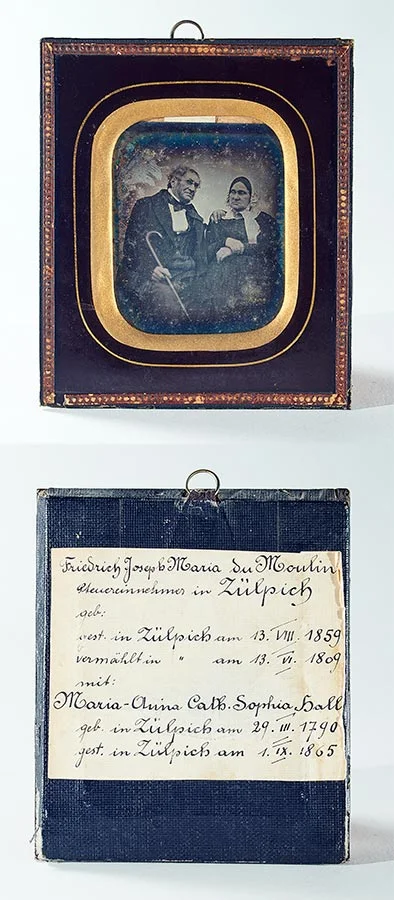 Friedrich Joseph Maria du Moulin
Steuereinnehmer in Zülpich
geb:
gest. in Zülpich am 13. VIII. 1859
vermählt in " am 13. VI. 1809
mit:
Maria-Anna Cath. Sophia Hall
geb. in Zülpich am 29. III. 1790
gest. in Zülpich am 1. IX. 1865